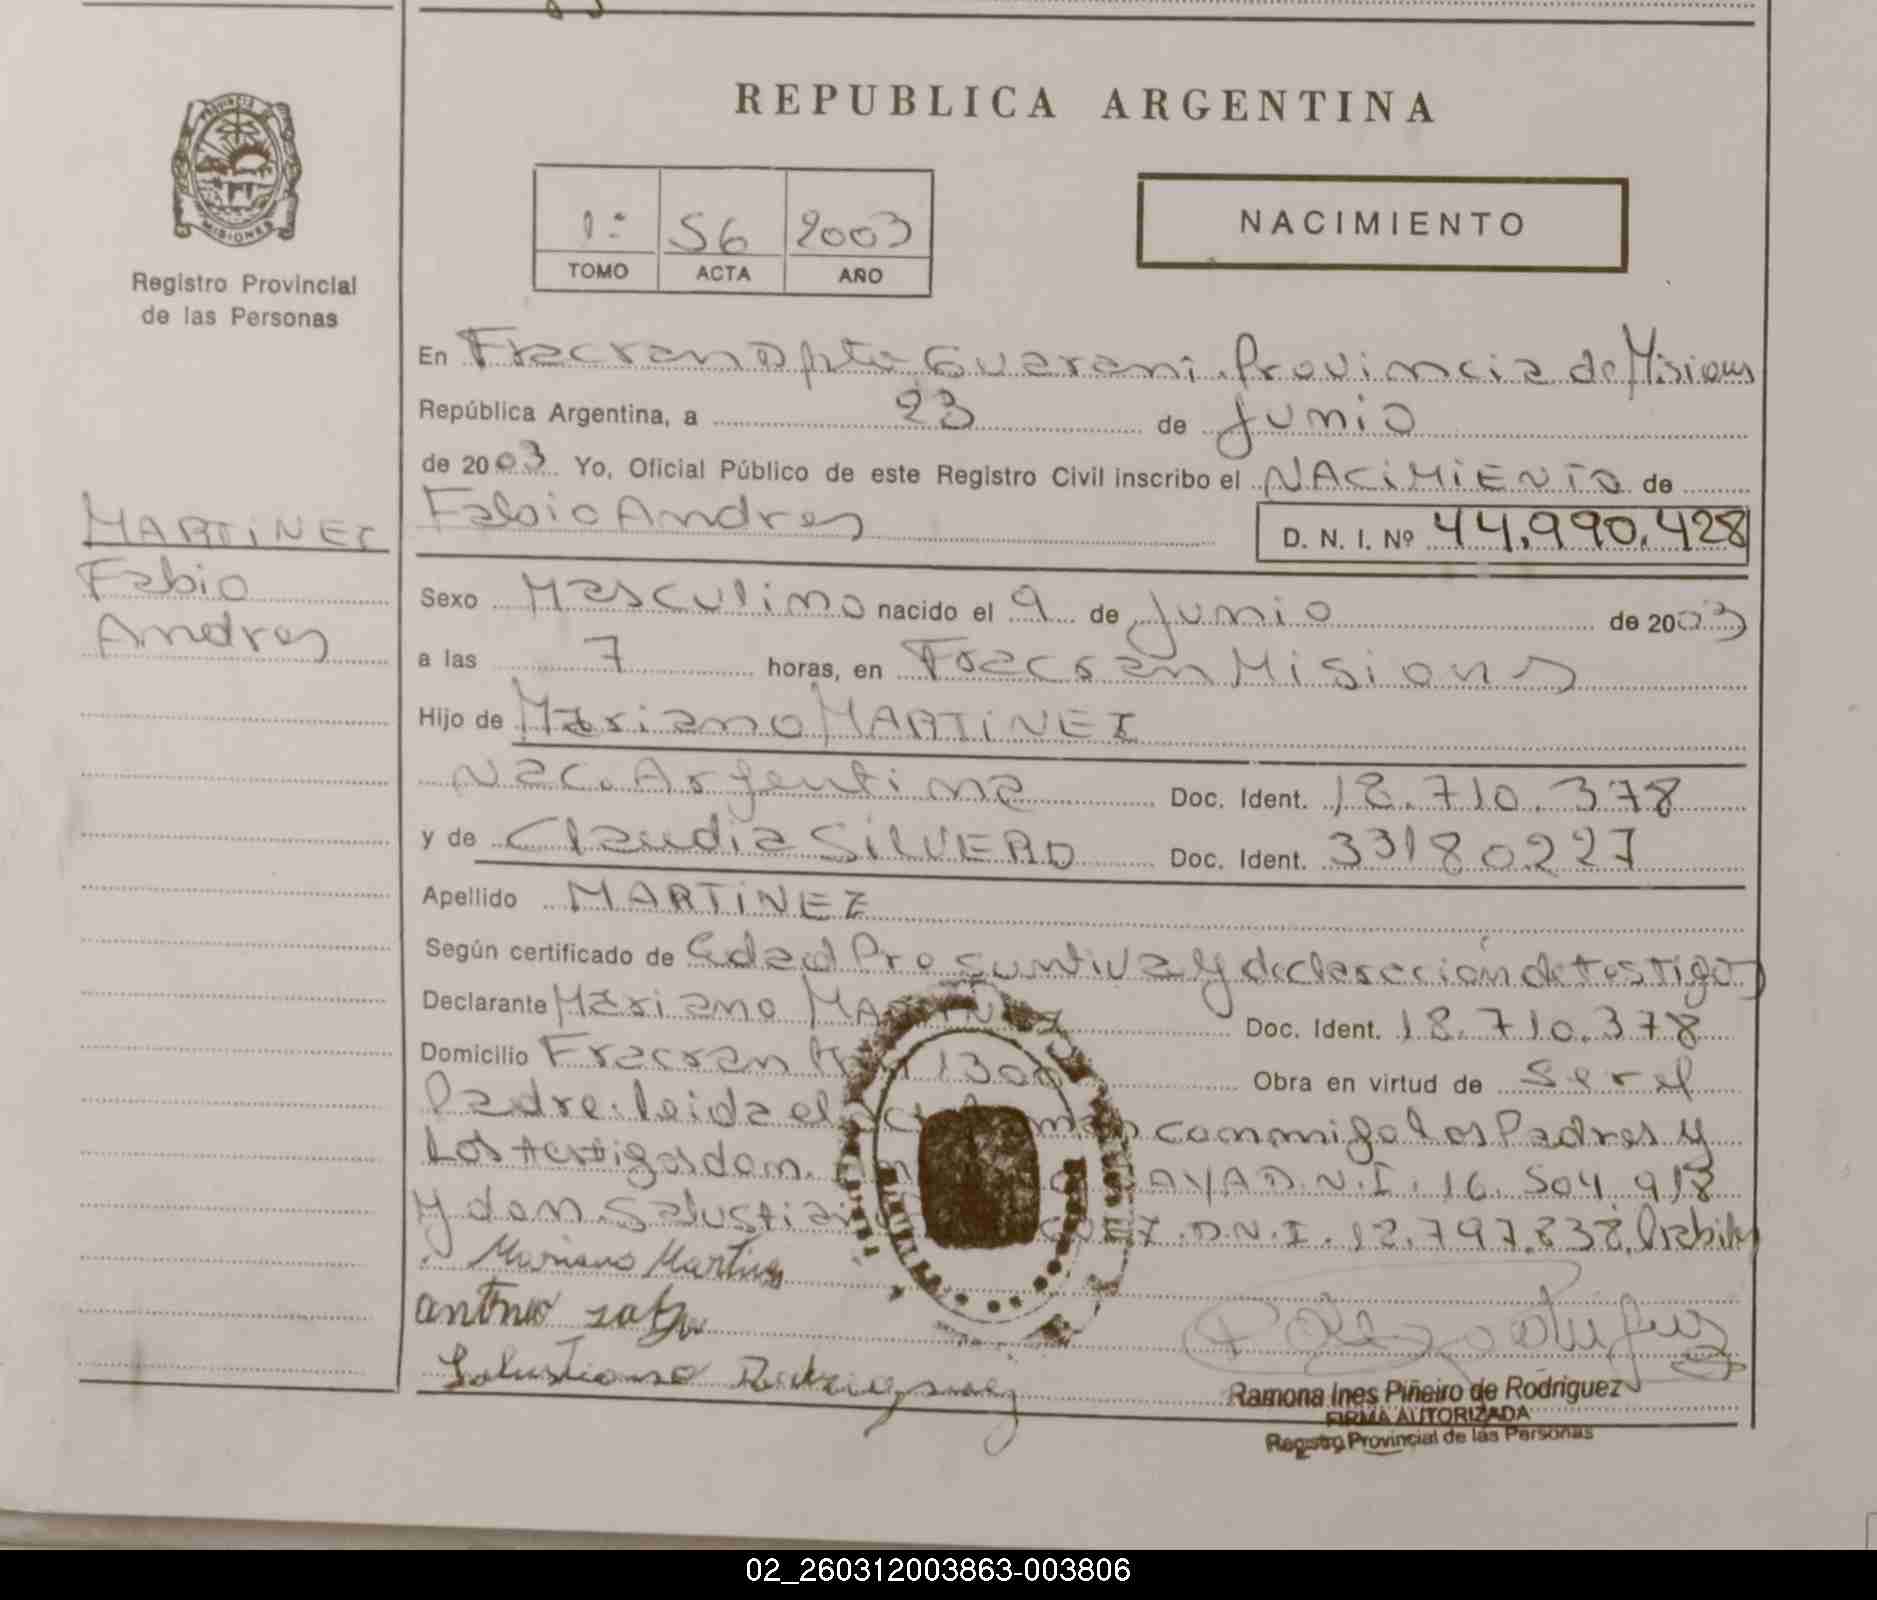 REPUBLICA ARGENTINA
PROVINCIA
MISIONES
Registro Provincial
de las Personas
1º 56 2003
TOMO ACTA AÑO
NACIMIENTO
MARTINEZ
Fabio
Andres
En Fracran Dpto Guarani. Provincia de Misiones
República Argentina, a 23 de Junio
de 2003 Yo, Oficial Público de este Registro Civil inscribo el NACIMIENTO de
Fabio Andres D. N. I. Nº 44.990.428
Sexo Masculino nacido el 9 de Junio de 2003
a las 7 horas, en Fracran Misiones
Hijo de Mariano MARTINEZ
Nac. Argentina Doc. Ident. 18.710.378
y de Claudia SILVERO Doc. Ident. 33180227
Apellido MARTINEZ
Según certificado de Edad Presuntiva y declaracion de testigos
Declarante Mariano MARTINEZ Doc. Ident. 18.710.378
Domicilio Fracran Km 1300 Obra en virtud de ser el
Padre. leida el conmigo los Padres y
Los testigos don. D.N.I. 16.504.918
y don. Salustiano D.N.I. 12.797.838.
Mariano Martinez
Salustiano
Ramona Ines Piñeiro de Rodriguez
FIRMA AUTORIZADA
Registro Provincial de las Personas
02_260312003863-003806